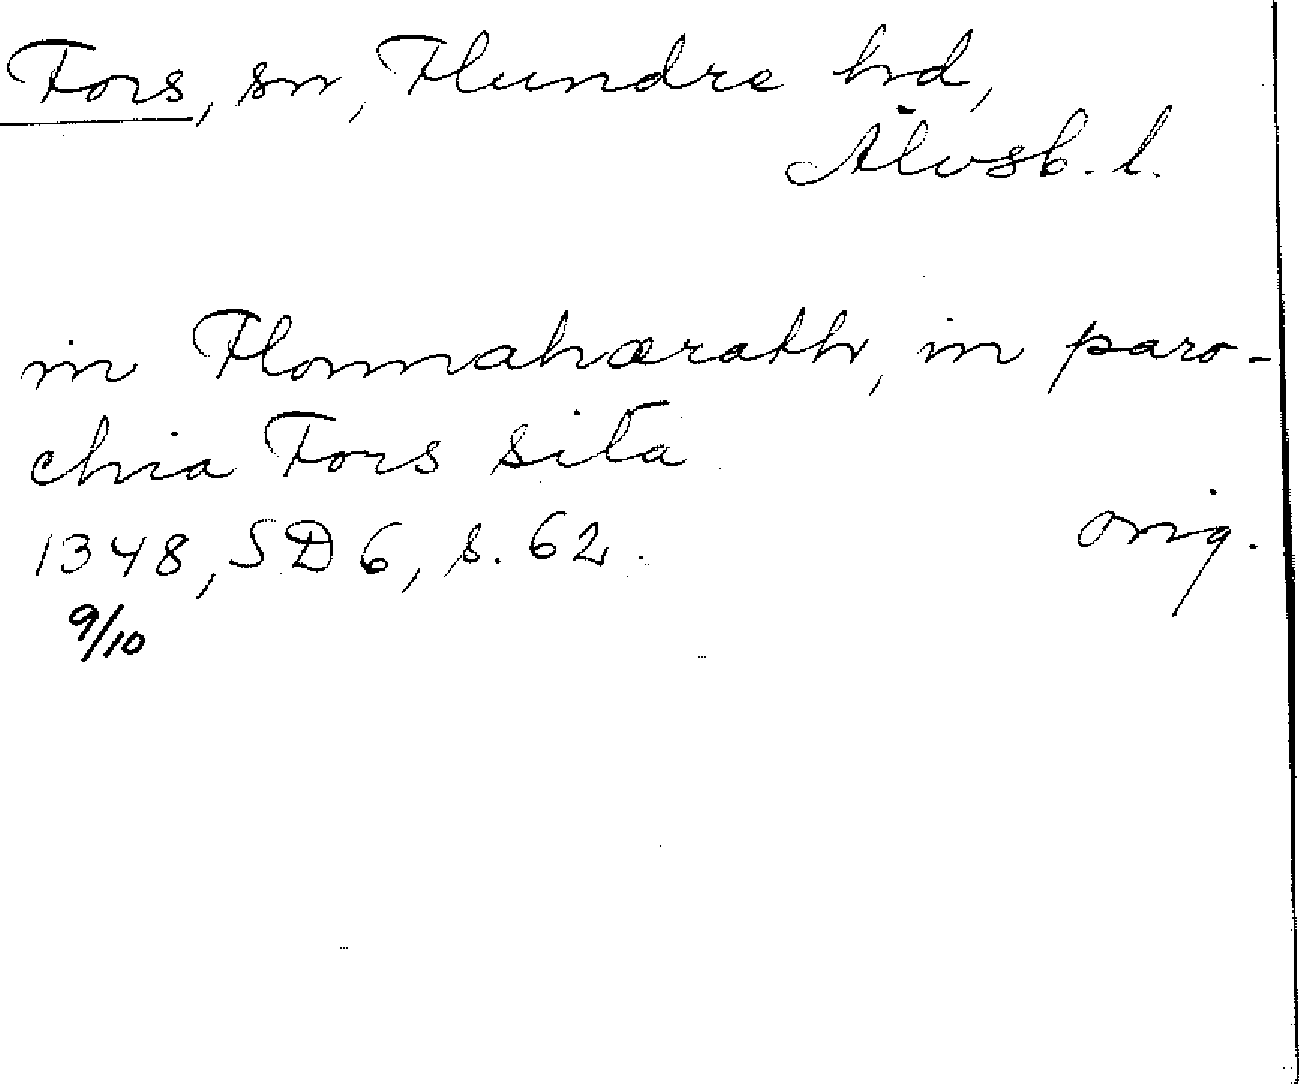 Fors, sn, Flundre hd,
Älvsb. l.
in Flomahærath, in paro-
chia Fors sita
1348, SD 6, s. 62. orig.
9/10